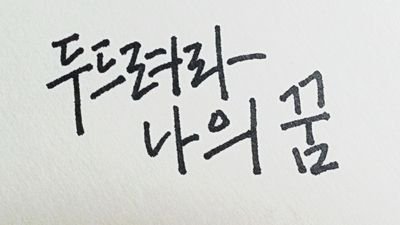 두드려라
나의 꿈